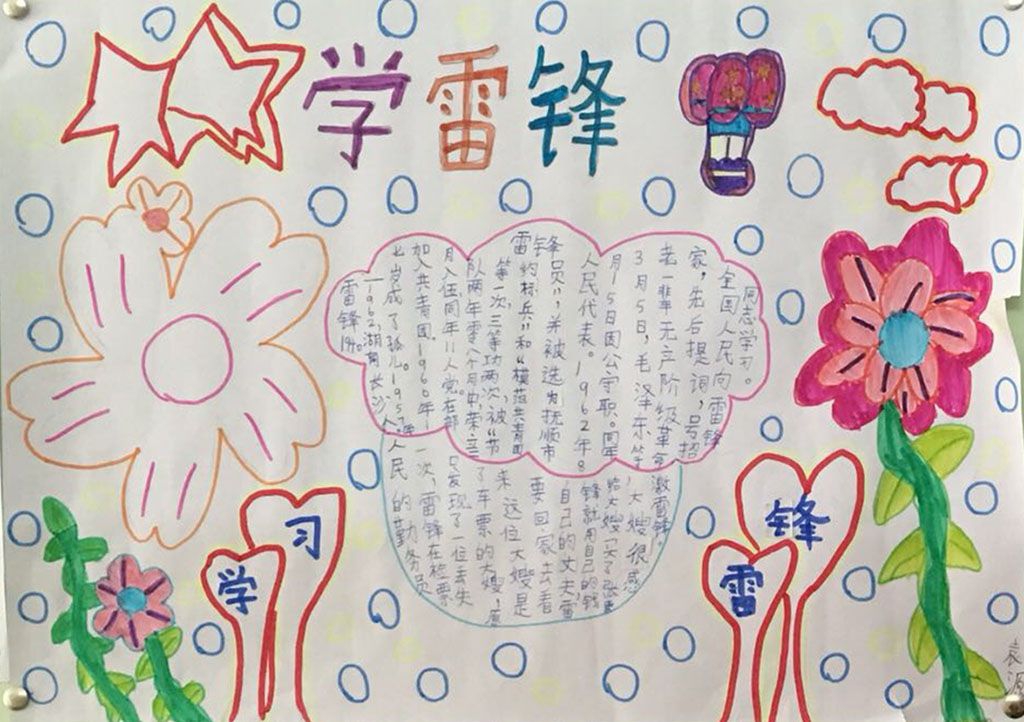 学雷锋
雷锋19
1962,湖南长沙人
七岁成了孤儿1957年
加入共青团。1960年
月入伍同年11入党在部
队两年零八个月中,荣立
第一次,三等功两次,被“节
雷的标兵”和“模范共青团
锋员”,并被选为抚顺市
人民代表。1962年8
月15日因公牢职。同年
3月5日,毛泽东等
老一辈无产阶级革命
家,先后提词,号招
全国人民向雷锋
同志学习。
人民的勤务员
一次,雷锋在检票
只发现了一位丢失
了车票的大嫂,原
来这位大嫂是
要回家去看
自己的丈夫雷
锋就用自己的钱
给大嫂买了张票
大嫂很感
激雷锋
学习
雷锋
袁源